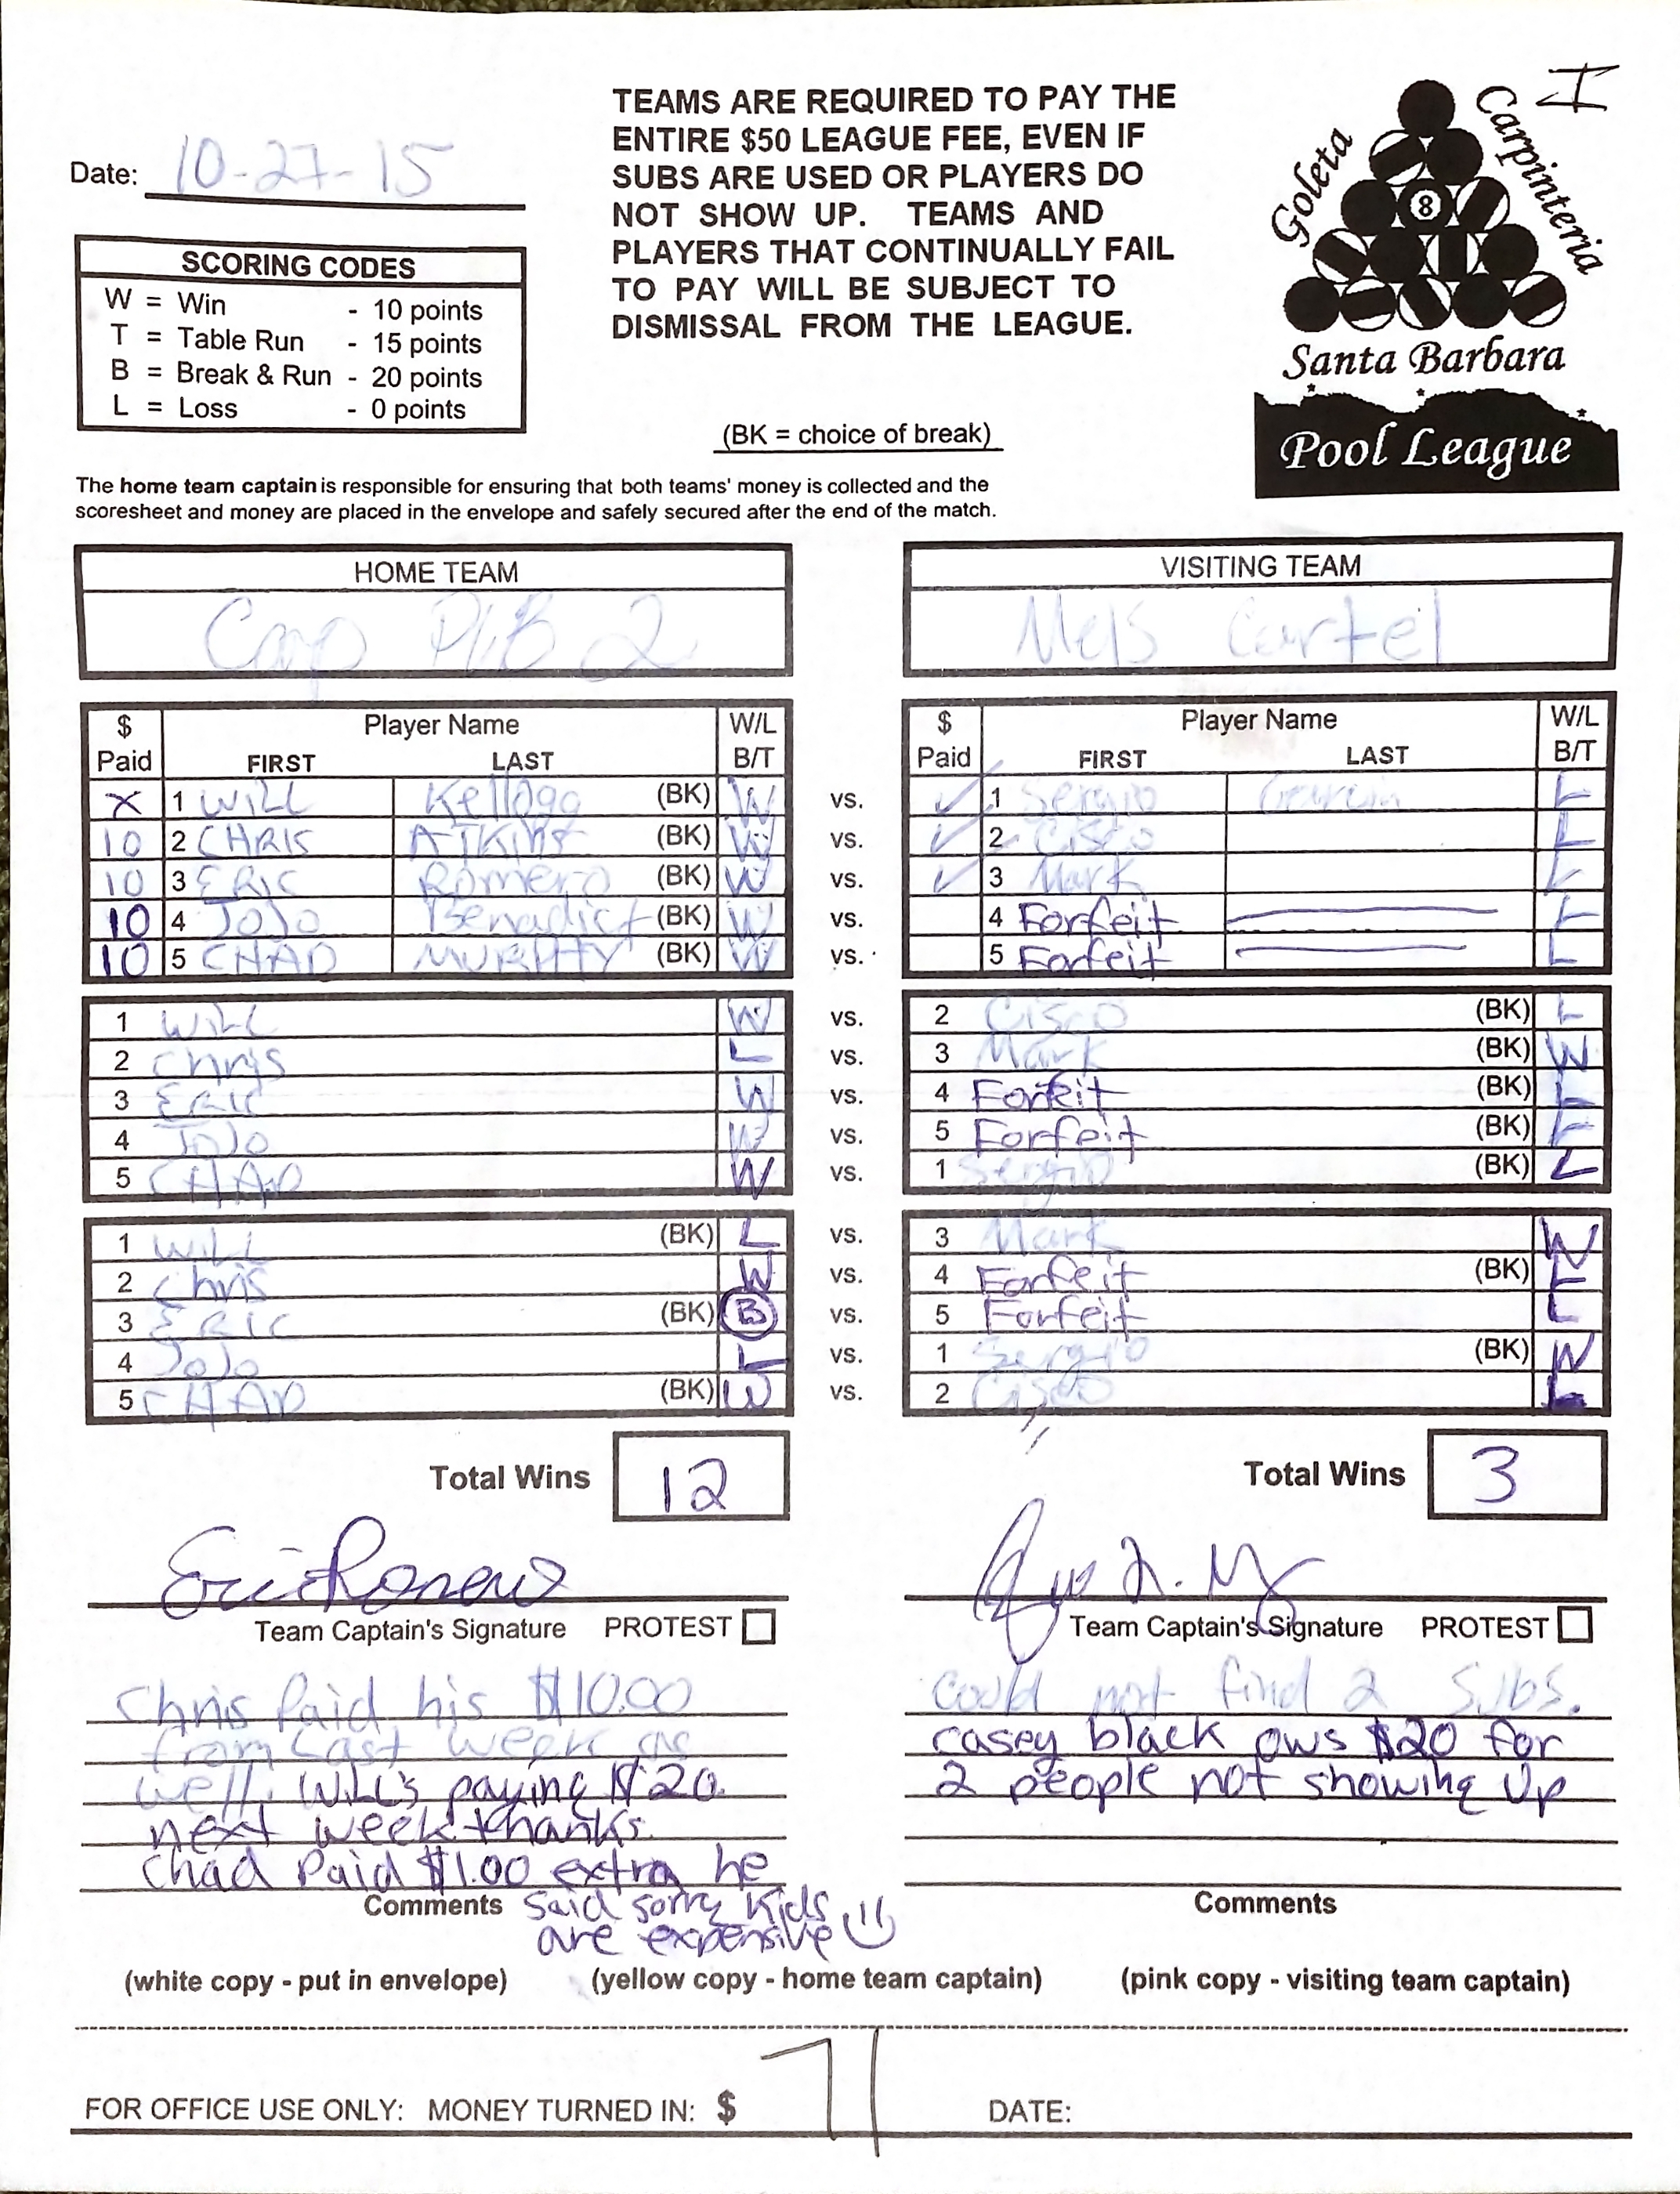 I
Date: 10-27-15
TEAMS ARE REQUIRED TO PAY THE
ENTIRE $50 LEAGUE FEE, EVEN IF
SUBS ARE USED OR PLAYERS DO
NOT SHOW UP. TEAMS AND
PLAYERS THAT CONTINUALLY FAIL
TO PAY WILL BE SUBJECT TO
DISMISSAL FROM THE LEAGUE.
Goleta
Carpinteria
8
Santa Barbara
Pool League
SCORING CODES
W = Win - 10 points
T = Table Run - 15 points
B = Break & Run - 20 points
L = Loss - 0 points
(BK = choice of break)
The home team captain is responsible for ensuring that both teams' money is collected and the
scoresheet and money are placed in the envelope and safely secured after the end of the match.
HOME TEAM
Cap Pub 2
VISITING TEAM
Mels Cartel
$ Paid Player Name FIRST LAST W/L B/T
$ Paid Player Name FIRST LAST W/L B/T
X 1 WILL Kellogg (BK) W vs. ✓ 1 Sergio Garcia L
10 2 CHRIS ATKINS (BK) W vs. ✓ 2 Cisco L
10 3 ERIC Romero (BK) W vs. ✓ 3 Mark L
10 4 JoJo Benadict (BK) W vs. 4 Forfeit L
10 5 CHAD MURPHY (BK) W vs. 5 Forfeit L
1 WILL W vs. 2 Cisco (BK) L
2 Chris L vs. 3 Mark (BK) W
3 ERIC W vs. 4 Forfeit (BK) L
4 JoJo W vs. 5 Forfeit (BK) L
5 CHAD W vs. 1 Sergio (BK) L
1 WILL (BK) L vs. 3 Mark W
2 Chris W vs. 4 Forfeit (BK) L
3 ERIC (BK) B vs. 5 Forfeit L
4 JoJo L vs. 1 Sergio (BK) W
5 CHAD (BK) W vs. 2 Cisco L
Total Wins 12
Total Wins 3
Eric Romero
Team Captain's Signature PROTEST
Team Captain's Signature PROTEST
Chris Paid his $10.00
from last week as
well. Will's paying $20
next week thanks.
Chad Paid $1.00 extra he
Comments said sorry kids
are expensive
could not find 2 subs.
casey black ows $20 for
2 people not showing up
Comments
(white copy - put in envelope) (yellow copy - home team captain) (pink copy - visiting team captain)
FOR OFFICE USE ONLY: MONEY TURNED IN: $ 71 DATE: